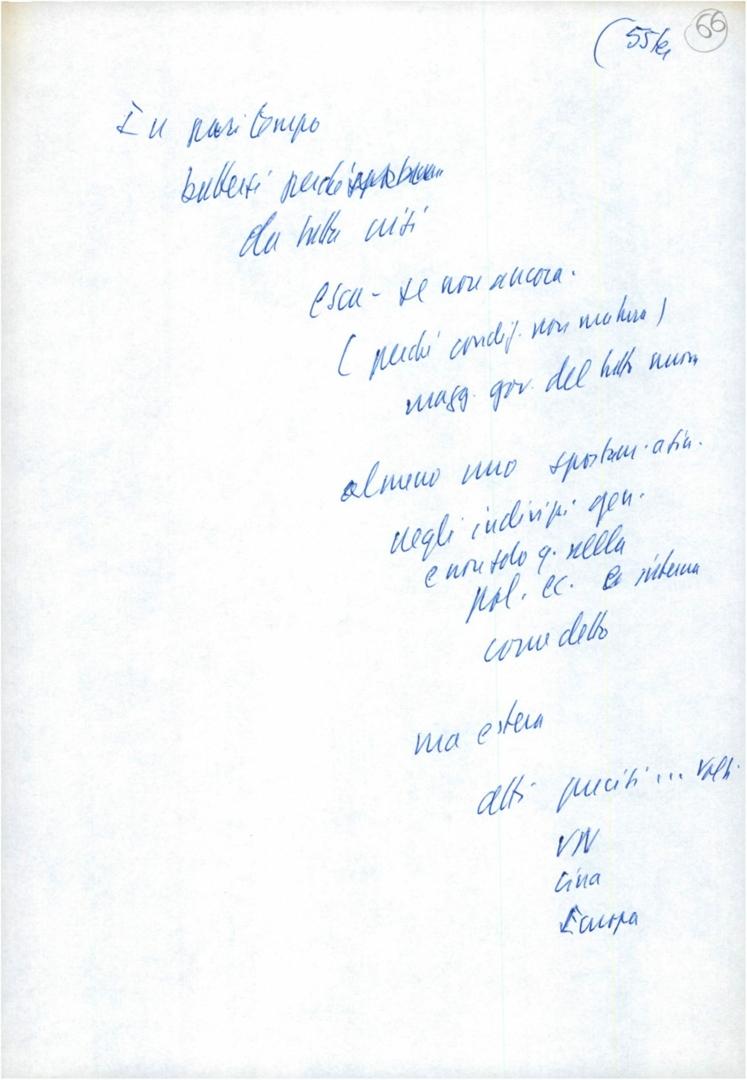 (55 bis 66
In pari tempo
battersi perché
da tutta crisi
esca - se non ancora.
( perché condiz. non matura )
magg. gov. del tutto nuova
almeno uno spostam.
negli indirizzi gen.
e non solo q. nella
pol. ec. e interna
come detto
ma estera
atti precisi ... volti
VN
Cina
Europa